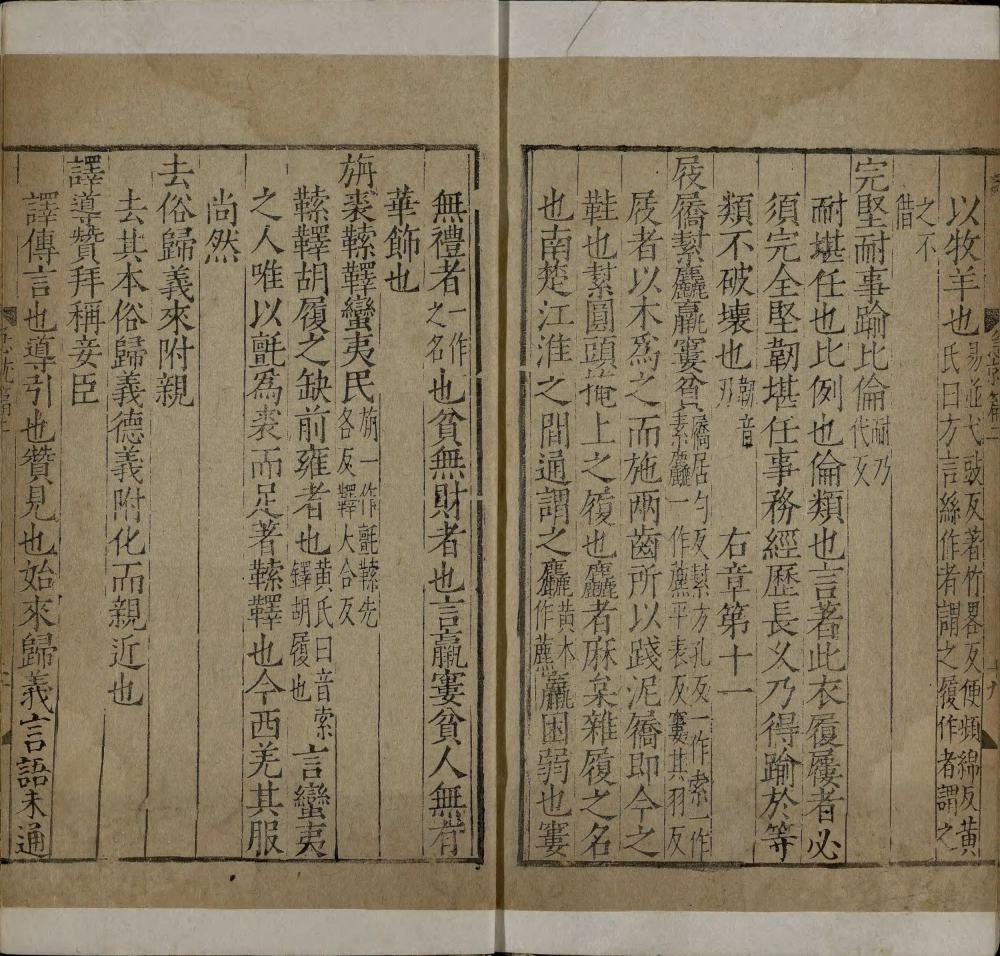 以牧羊也易並弋豉反著竹畧反便頻綿反黃氏曰方言絲作者謂之履作者謂之
之不借
完堅耐事踰比倫耐乃代反
耐堪任也比例也倫類也言著此衣履屨者必
須完全堅韌堪任事務經歷長久乃得踰於等
類不破壞也韌音刃 右章第十一
屐屩䋈麤羸窶貧屩居勺反䋈方孔反一作索一作素麤一作薦平表反窶其羽反
屐者以木為之而施兩齒所以踐泥屩即今之
鞋也䋈圓頭掩上之履也麤者麻枲雜履之名
也南楚江淮之間通謂之麤黃本作薦羸困弱也窶
無禮者一作之名也貧無財者也言羸窶貧人無有
華飾也
旃裘䩡鞮蠻夷民旃一作氈䩡先各反鞮大合反
䩡鞮胡履之缺前雍者也黃氏曰音索鐸胡履也言蠻夷
之人唯以氈為裘而足著䩡鞮也今西羌其服
尚然
去俗歸義來附親
去其本俗歸義德義附化而親近也
譯導贊拜稱妾臣
譯傳言也導引也贊見也始來歸義言語未通